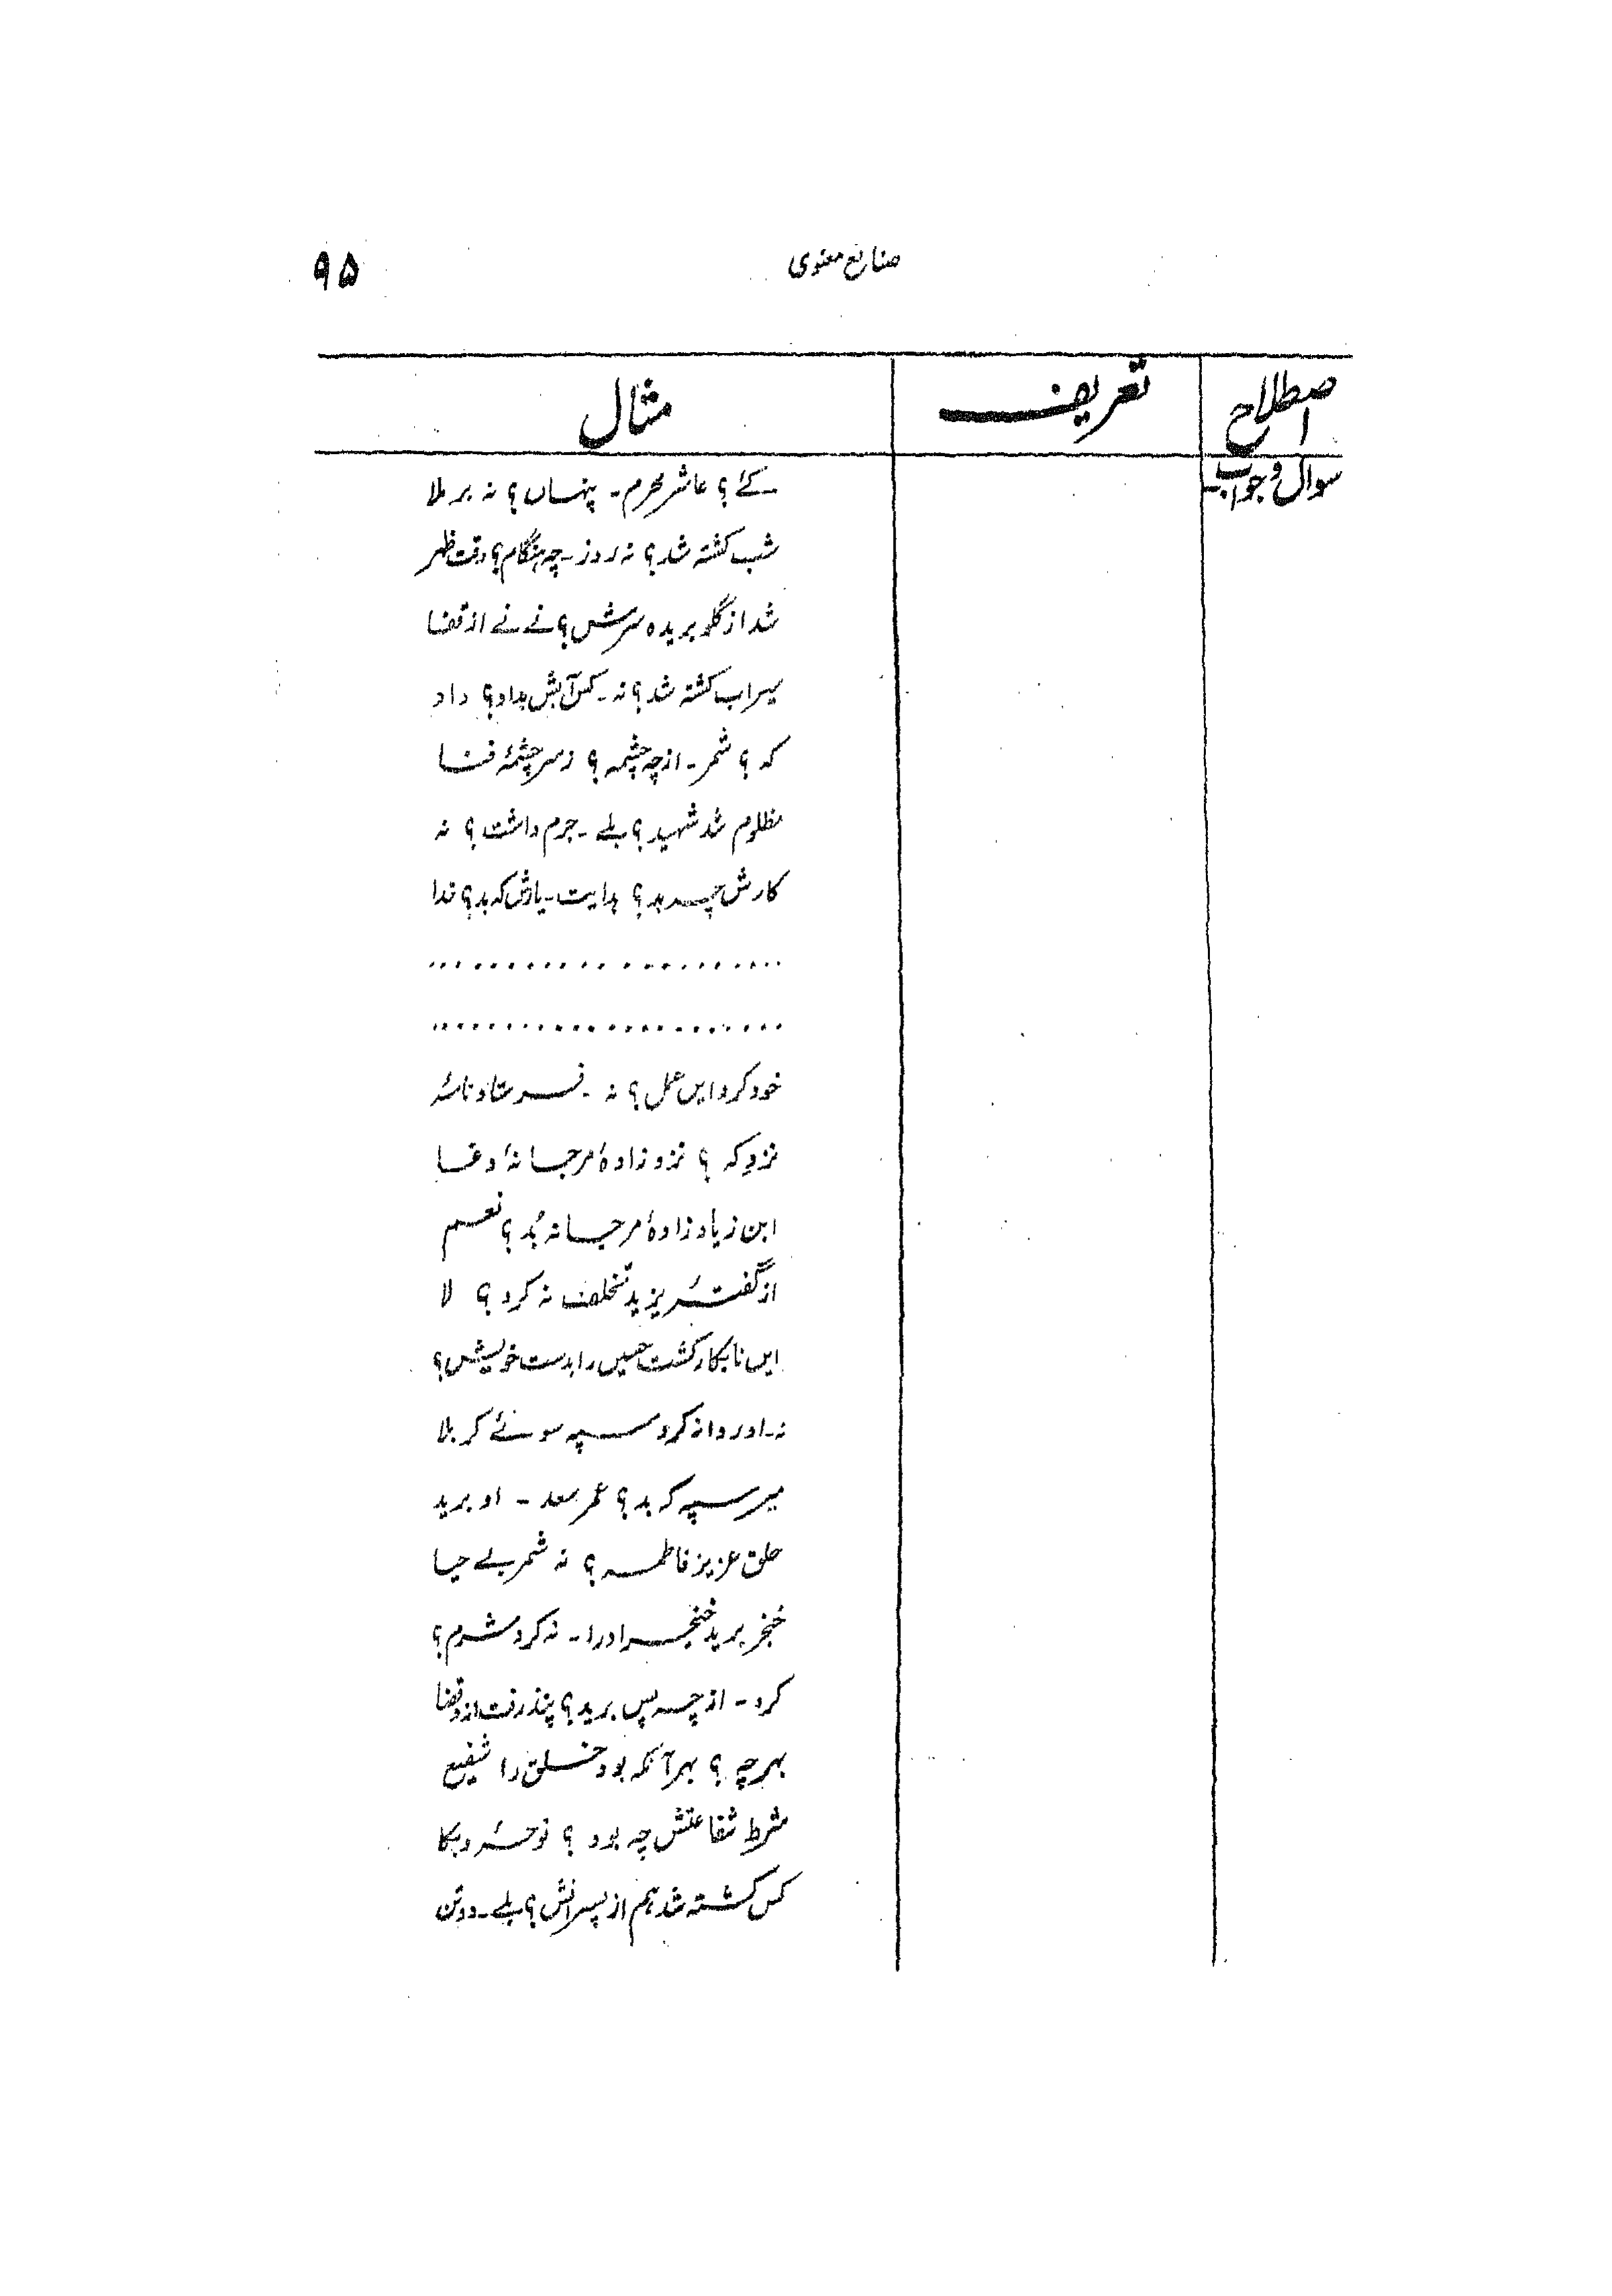 صنایع معنوی
۹۵
اصطلاح
تعریف
مثال
سوال و جواب
کے؟ عاشر محرم۔ پنہاں؟ نہ بر ملا
شب کشتہ شد؟ نہ روز۔ چہ ہنگام؟ وقت ظہر
شد از گلو بریدہ سرش؟ نے نے از قفا
سیراب کشتہ شد؟ نہ۔ کس آبش بداد؟ داد
کہ؟ شمر۔ از چہ چشمہ؟ ز سرچشمۂ فنا
مظلوم شد شہید؟ بلے۔ جرم داشت؟ نہ
کارش چہ بد؟ ہدایت۔ یارش کہ بد؟ خدا
۔۔۔۔۔۔۔۔۔۔۔۔۔۔۔۔۔۔۔۔۔۔
۔۔۔۔۔۔۔۔۔۔۔۔۔۔۔۔۔۔۔۔۔۔
خود کرد ایں عمل؟ نہ۔ فرستاد نامۂ
نزدِ کہ؟ نزد زادۂ مرجانۂ دغا
ابن زیاد زادۂ مرجانہ بُد؟ نعم
از گفتۂ یزید تخلف نہ کرد؟ لا
ایں نابکار کشت حسین را بدست خویش؟
نہ۔ او روانہ کرد سپہ سوئے کربلا
میر سپہ کہ بد؟ عمر سعد۔ او برید
حلق عزیز فاطمہ؟ نہ شمر بے حیا
خنجر برید حنجر او را۔ نہ کرد شرم؟
کرد۔ از چہ پس برید؟ پنذرفت ازو قضا
بہر چہ؟ بہر آنکہ بود خلق را شفیع
شرط شفاعتش چہ بود؟ نوحہ و بکا
کس کشتہ شد ہم از پسرانش؟ بلے۔ دو تن